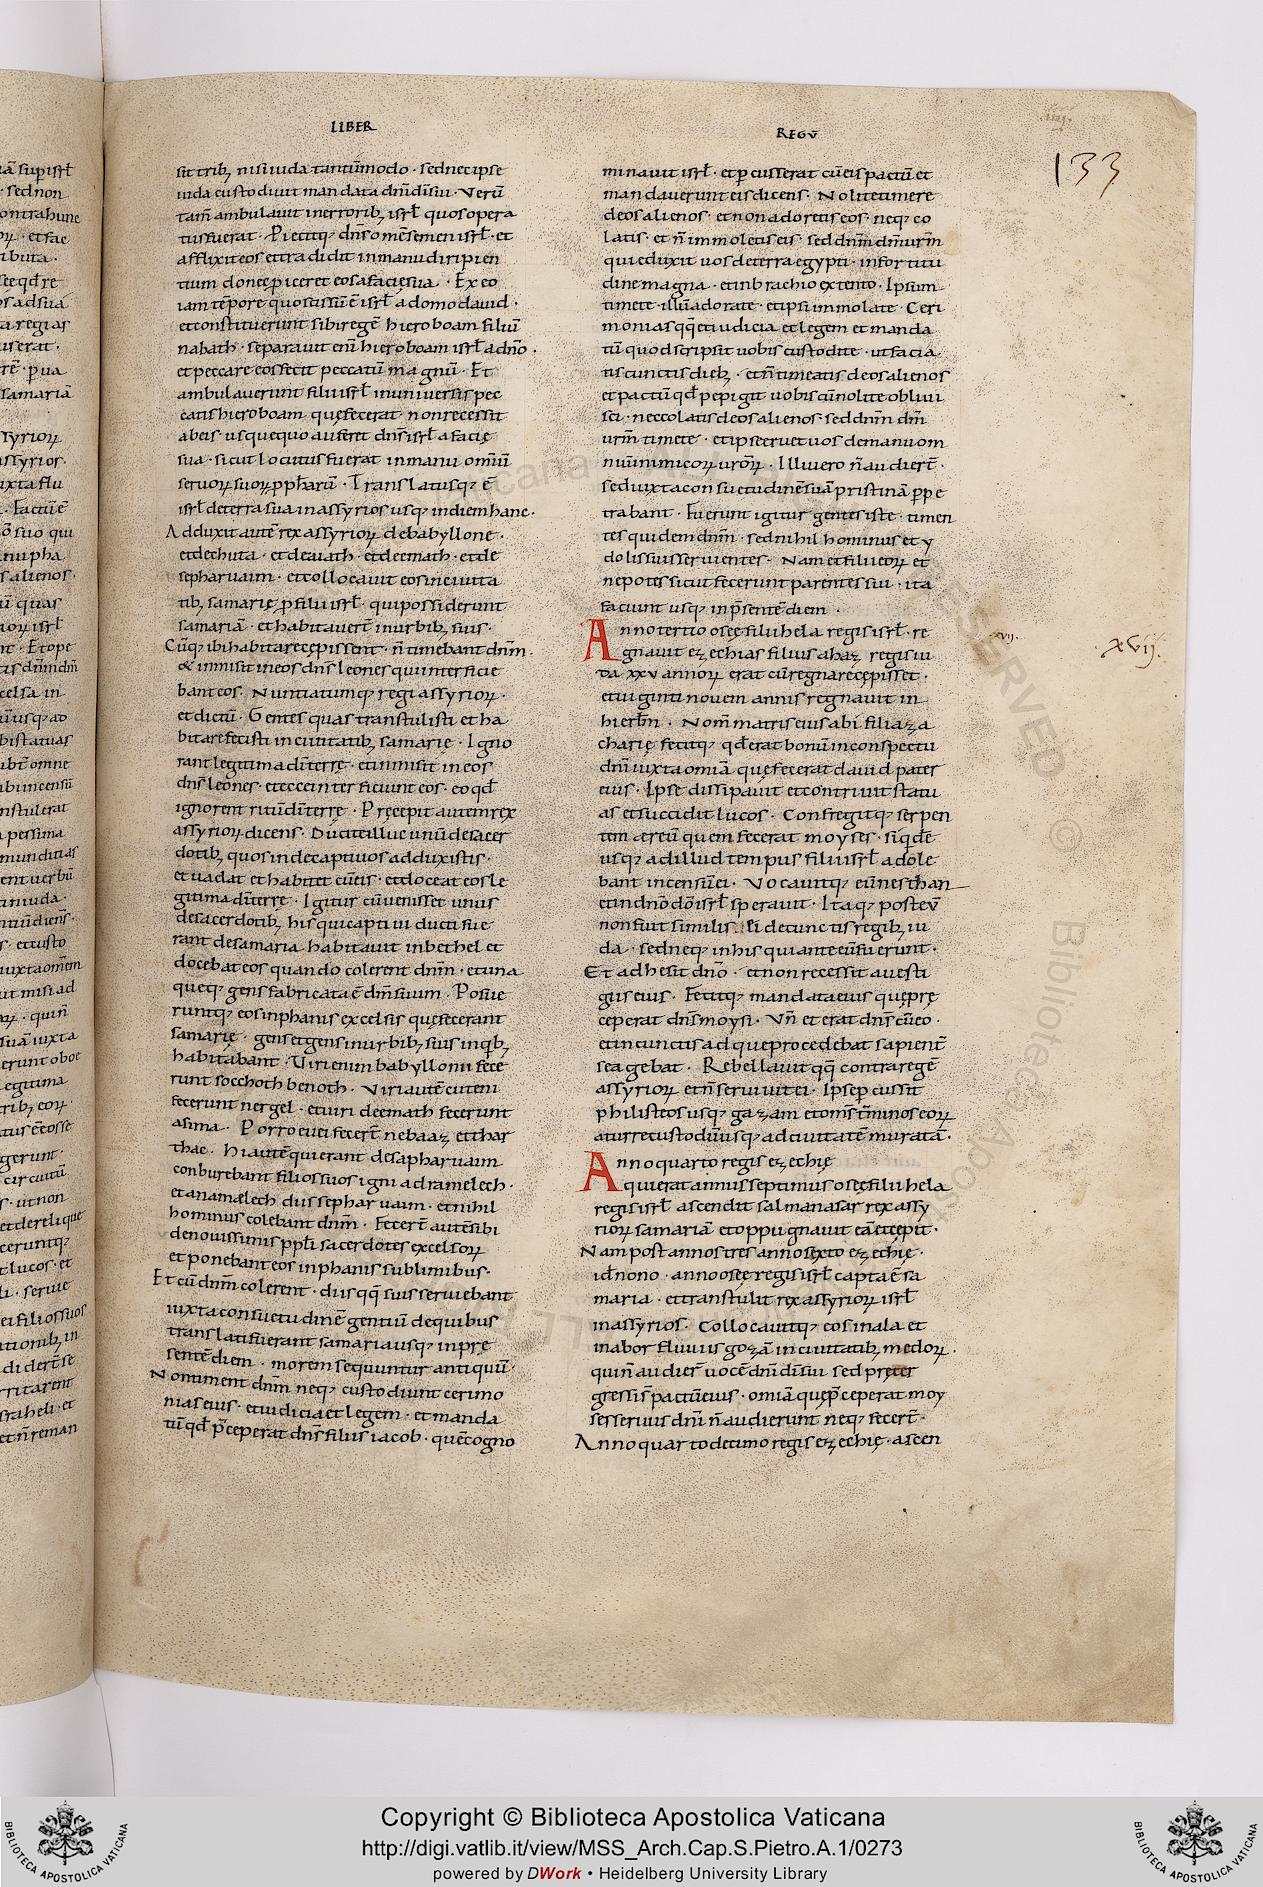 LIBER
REGŪ
133
sit trib; nisi iuda tantūmodo · sed nec ipse
iuda custodiuit mandata dn̄i dī sui · Verū
tam̄ ambulauit in errorib; isrł quos opera
tus fuerat · Proiecitq; dn̄s omē semen isrł · et
afflixit eos et tradidit in manu diripien
tium donec piceret eos a facie sua · Ex eo
iam tēpore quo scissū ē isrł a domo dauid ·
et constituerunt sibi regē hieroboam filiū
nabath · separauit enī hieroboam isrł a dn̄o ·
et peccare eos fecit peccatū magnū · Et
ambulauerunt filii isrł in uniuersis pec
catis hieroboam que fecerat · non recessit
ab eis · usquequo auferet dn̄s isrł a facie
sua · sicut locutus fuerat in manu omiū
seruoꝝ suoꝝ ppharū · Translatusq; ē
isrł de terra sua in assyrios usq; in diem hanc ·
Adduxit autē rex assyrioꝝ de babyllone ·
et de chuta · et de aiath · et de emath · et de
sepharuaim · et collocauit eos in ciuita
tib; samarię p̱ filii isrł · qui possiderunt
samariā · et habitauer̄t in urbib; suis ·
Cūq; ibi habitare cępissent · n̄ timebant dn̄m ·
& inmisit in eos dn̄s leones qui interficie
bant eos · Nuntiatumq; regi assyrioꝝ ·
et dictū · Gentes quas transtulisti et ha
bitare fecisti in ciuitatib; samarię · Igno
rant legitima dī terrę · et inmisit in eos
dn̄s leōnes · et ecce interficiunt eos · eo qđ
ignorent ritū dī terrę · Precepit autem rex
assyrioꝝ dicens · Ducite illuc unū de sacer
dotib; quos inde captiuos adduxistis ·
et uadat et habitet cū eis · et doceat eos le
gitima dī terrę · Igitur cū uenisset unus
de sacerdotib; his qui captiui ducti fue
rant de samaria habitauit in bethel et
docebat eos quando colerent dn̄m · et una
queq; gens fabricata ē dm̄ suum · Posue
runtq; eos in phanis excelsis quę fecerant
samarię · gens et gens in urbib; suis in qb;
habitabant · Viri enim babyllonii fece
runt socchoth benoth · Viri autē cuteni
fecerunt nergel · et uiri de emath fecerunt
asima · Porro euei fecer̄t nebaaz et thar
thac · Hi autē qui erant de sapharuaim
conburebant filios suos igni adramelech ·
et anamælech diis sepharuaim · et nihil
hominus colebant dn̄m · Fecer̄t autē sibi
de nouissimis pplī sacerdotes excelsoꝝ
et ponebant eos in phanis sublimibus ·
Et cū dn̄m colerent · diis qq̄ suis seruiebant
iuxta consuetudinē gentiū de quibus
translati fuerant samaria usq; in prę
sentē diem · morem sequuntur antiquū ·
Non timent dn̄m neq; custodiunt cerimo
nias eius · et iudicia et legem · et manda
tū qđ p̄ceperat dn̄s filiis iacob · quē cogno
minauit isrł · et p̱cusserat cū eis pactū et
mandauerunt eis dicens · Nolite timere
deos alienos · et non adoretis eos · neq; co
latis · et n̄ immoletis eis · sed dn̄m dm̄ urm̄
qui eduxit uos de terra egypti · in fortitu
dine magna · et in brachio extento · Ipsum
timete · illū adorate · et ipsi immolate · Ceri
monias qq̄ et iudicia et legem et manda
tū quod scripsit uobis custodite · ut facia
tis cunctis dieb; · et n̄ timeatis deos alienos
et pactū qđ pepigit uobiscū nolite obliui
sci · nec colatis deos alienos · sed dn̄m dm̄
urm̄ timete · et ipse eruet uos de manu om
niū inimicoꝝ uroꝝ · Illi uero n̄ audier̄t ·
sed iuxta consuetudinē suā pristinā p̱pe
trabant · Fuerunt igitur gentes iste · timen
tes quidem dn̄m · sed nihil hominus et y
dolis suis seruientes · Nam et filii eoꝝ et
nepotes sicut fecerunt parentes sui · ita
faciunt usq; in p̄sentē diem ·
Anno tertio osęe filii hela regis isrł · re
gnauit ezechias filius ahaz regis iu
da xxv annoꝝ erat cū regnare cępisset ·
et uiginti nouem annis regnauit in
hierłm · Nom̄ matris eius abi filia za
charię fecitq; qđ erat bonū in conspectu
dn̄i iuxta omīa que fecerat dauid pater
eius · Ipse dissipauit et contriuit statu
as et succidit lucos · Confregitq; serpen
tem æreū quem fecerat moyses · siqđe
usq; ad illud tempus filii isrł adole
bant incensū ei · Vocauitq; eū nesthan
et in dn̄o dō isrł sperauit · Itaq; post eū
non fuit similis ei de cunctis regib; iu
da · sed neq; in his qui ante eū fuerunt ·
Et adhesit dn̄o · et non recessit a uesti
giis eius · Fecitq; mandata eius que prę
ceperat dn̄s moysi · Vn̄ et erat dn̄s cū eo ·
et in cunctis ad que procedebat sapient̄
se agebat · Rebellauit qq̄ contra regē
assyrioꝝ et n̄ seruiuit ei · Ipse p̱cussit
philisteos usq; gazam et om̄s tm̄inos eoꝝ
a turre custodū usq; ad ciuitatē muratā ·
Anno quarto regis ezechię
qui erat annus septimus osęe filii hela
regis isrł ascendit salmanasar rex assy
rioꝝ samariā et oppugnauit eā et cepit ·
Nam post annos tres anno sexto ezechię ·
id̄ nono · anno osęe regis isrł capta ē sa
maria · et transtulit rex assyrioꝝ isrł
in assyrios · Collocauitq; eos in ala et
in abor fluuiis gozā in ciuitatib; medoꝝ ·
qui n̄ audier̄ uocē dn̄i dī sui sed pręter
gressi s̄ pactū eius · omīa quę p̄ceperat moy
ses seruus dn̄i n̄ audierunt neq; fecer̄t ·
Anno quarto decimo regis ezechię · ascen
xvij.
xvij.
Copyright © Biblioteca Apostolica Vaticana
http://digi.vatlib.it/view/MSS_Arch.Cap.S.Pietro.A.1/0273
powered by DWork • Heidelberg University Library
BIBLIOTECA APOSTOLICA VATICANA
BIBLIOTECA APOSTOLICA VATICANA